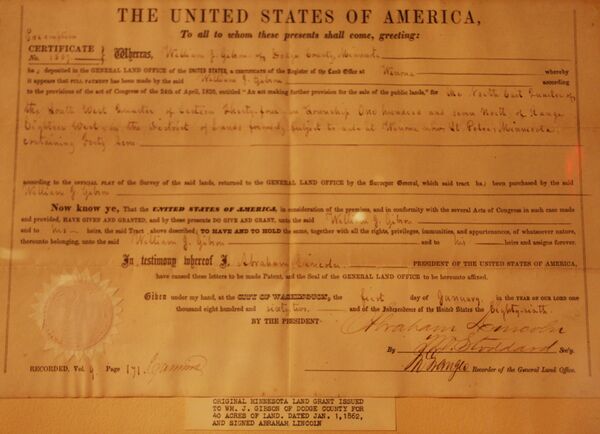 THE UNITED STATES OF AMERICA,
To all to whom these presents shall come, greeting:
CERTIFICATE
No.
Whereas, William J. Gibson of Dodge County, Minnesota
has deposited in the GENERAL LAND OFFICE of the UNITED STATES, a CERTIFICATE of the Register of the Land Office at Winona whereby
it appears that FULL PAYMENT has been made by the said William J. Gibson according
to the provisions of the act of Congress of the 24th of April, 1820, entitled "An act making further provision for the sale of the public lands," for the North East Quarter of
the South West Quarter of Section Twenty four in Township One hundred and seven North of Range
Eighteen West in the District of Lands formerly subject to sale at Winona now St Peter, Minnesota,
containing forty acres
according to the OFFICIAL PLAT of the Survey of the said lands, returned to the GENERAL LAND OFFICE by the Surveyor General, which said tract has been purchased by the said
William J. Gibson
Now know ye, That the UNITED STATES OF AMERICA, in consideration of the premises, and in conformity with the several Acts of Congress in such case made
and provided, HAVE GIVEN AND GRANTED, and by these presents DO GIVE AND GRANT, unto the said William J. Gibson
and to his heirs, the said Tract above described; TO HAVE AND TO HOLD the same, together with all the rights, privileges, immunities, and appurtenances, of whatsoever nature,
thereunto belonging, unto the said William J. Gibson and to his heirs and assigns forever.
In testimony whereof I, Abraham Lincoln PRESIDENT OF THE UNITED STATES OF AMERICA,
have caused these letters to be made Patent, and the Seal of the GENERAL LAND OFFICE to be hereunto affixed.
Given under my hand, at the CITY OF WASHINGTON, the first day of January in the YEAR OF OUR LORD one
thousand eight hundred and sixty two and of the Independence of the United States the Eighty-sixth.
BY THE PRESIDENT:
Abraham Lincoln
By W. O. Stoddard Sec'y.
RECORDED, Vol. 9 Page 171 Recorder of the General Land Office.
ORIGINAL MINNESOTA LAND GRANT ISSUED
TO WM. J. GIBSON OF DODGE COUNTY FOR
40 ACRES OF LAND. DATED JAN. 1,1862,
AND SIGNED ABRAHAM LINCOLN